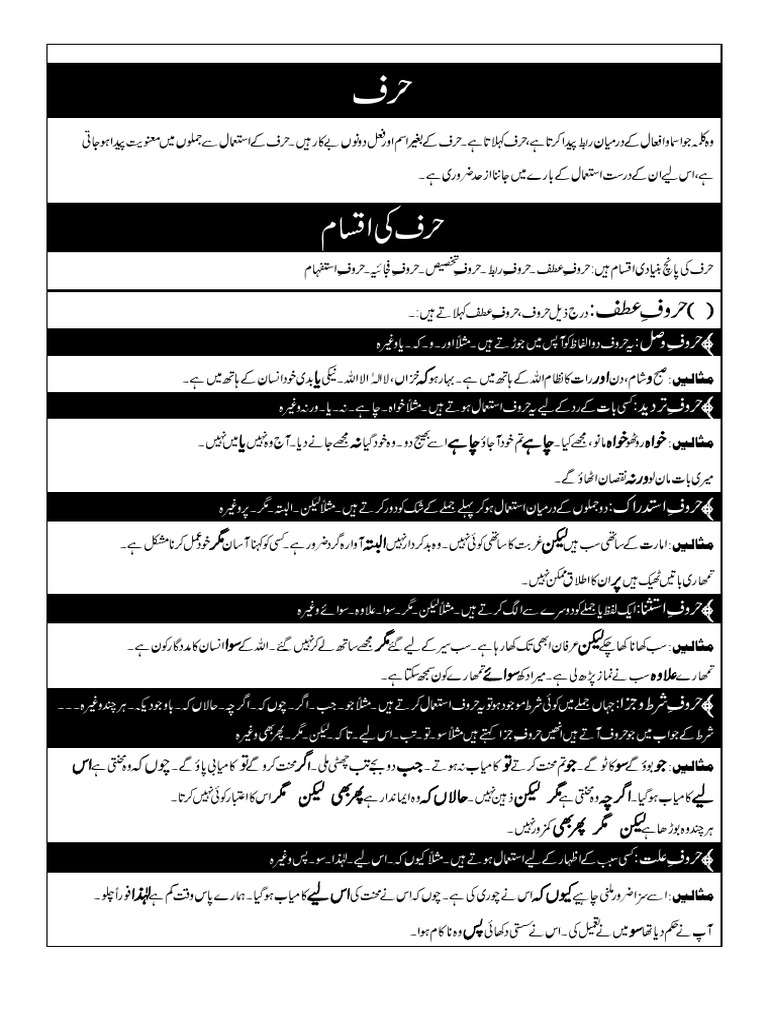 حرف
وہ کلمہ جو اسما و افعال کے درمیان ربط پیدا کرتا ہے، حرف کہلاتا ہے۔ حرف کے بغیر اسم اور فعل دونوں بے کار ہیں۔ حرف کے استعمال سے جملوں میں معنویت پیدا ہو جاتی
ہے، اس لیے ان کے درست استعمال کے بارے میں جاننا از حد ضروری ہے۔
حرف کی اقسام
حرف کی پانچ بنیادی اقسام ہیں: حروفِ عطف۔ حروفِ ربط۔ حروفِ تخصیص۔ حروفِ فجائیہ۔ حروفِ استفہام
( ) حروفِ عطف: درج ذیل حروف، حروفِ عطف کہلاتے ہیں:۔
حروفِ وصل: یہ حروف دو الفاظ کو آپس میں جوڑتے ہیں۔ مثلاً اور۔ و۔ کہ۔ یا وغیرہ
مثالیں: صبح و شام، دن اور رات کا نظام اللہ کے ہاتھ میں ہے۔ بہار ہو کہ خزاں، لا الہٰ الا اللہ۔ نیکی یا بدی خود انسان کے ہاتھ میں ہے۔
حروفِ تردید: کسی بات کے رد کے لیے یہ حروف استعمال ہوتے ہیں۔ مثلاً خواہ۔ چاہے۔ نہ۔ یا۔ ورنہ وغیرہ
مثالیں: خواہ روٹھو خواہ مانو، مجھے کیا۔ چاہے تم خود آ جاؤ چاہے اسے بھیج دو۔ وہ خود گیا نہ مجھے جانے دیا۔ آج وہ نہیں یا میں نہیں۔
میری بات مان لو ورنہ نقصان اٹھاؤ گے۔
حروفِ استدراک: دو جملوں کے درمیان استعمال ہو کر پہلے جملے کے شک کو دور کرتے ہیں۔ مثلاً لیکن۔ البتہ۔ مگر۔ پر وغیرہ
مثالیں: امارت کے ساتھی سب ہیں لیکن غربت کا ساتھی کوئی نہیں۔ وہ بد کردار نہیں البتہ آوارہ گرد ضرور ہے۔ کسی کو کہنا آسان مگر خود عمل کرنا مشکل ہے۔
تمھاری باتیں ٹھیک ہیں پر ان کا اطلاق ممکن نہیں۔
حروفِ استثنا: ایک لفظ یا جملے کو دوسرے سے الگ کرتے ہیں۔ مثلاً لیکن۔ مگر۔ سوا۔ علاوہ۔ سوائے وغیرہ
مثالیں: سب کھانا کھا چکے لیکن عرفان ابھی تک کھا رہا ہے۔ سب سیر کے لیے گئے مگر مجھے ساتھ لے کر نہیں گئے۔ اللہ کے سوا انسان کا مددگار کون ہے۔
تمھارے علاوہ سب نے نماز پڑھ لی ہے۔ میرا دکھ سوائے تمھارے کون سمجھ سکتا ہے۔
حروفِ شرط و جزا: جہاں جملے میں کوئی شرط موجود ہو تو یہ حروف استعمال کرتے ہیں۔ مثلاً جو۔ جب۔ اگر۔ چوں کہ۔ اگرچہ۔ حالاں کہ۔ باوجودیکہ۔ ہر چند وغیرہ۔۔۔
شرط کے جواب میں جو حروف آتے ہیں انھیں حروفِ جزا کہتے ہیں مثلاً سو۔ تو۔ تب۔ اس لیے۔ تا کہ۔ لیکن۔ مگر۔ پھر بھی وغیرہ
مثالیں: جو بوؤ گے سو کاٹو گے۔ جو تم محنت کرتے تو کامیاب نہ ہوتے۔ جب دو بجے تب چھٹی ملی۔ اگر محنت کرو گے تو کامیابی پاؤ گے۔ چوں کہ وہ محنتی ہے اس
لیے کامیاب ہو گیا۔ اگرچہ وہ محنتی ہے مگر لیکن ذہین نہیں۔ حالاں کہ وہ ایماندار ہے پھر بھی لیکن مگر اس کا اعتبار کوئی نہیں کرتا۔
ہر چند وہ بوڑھا ہے لیکن مگر پھر بھی کمزور نہیں۔
حروفِ علت: کسی سبب کے اظہار کے لیے استعمال ہوتے ہیں۔ مثلاً کیوں کہ۔ اس لیے۔ لہٰذا۔ سو۔ پس وغیرہ
مثالیں: اسے سزا ضرور ملنی چاہیے کیوں کہ اس نے چوری کی ہے۔ چوں کہ اس نے محنت کی اس لیے کامیاب ہو گیا۔ ہمارے پاس وقت کم ہے لہٰذا فوراً چلو۔
آپ نے حکم دیا تھا سو میں نے تعمیل کی۔ اس نے سستی دکھائی پس وہ ناکام ہوا۔